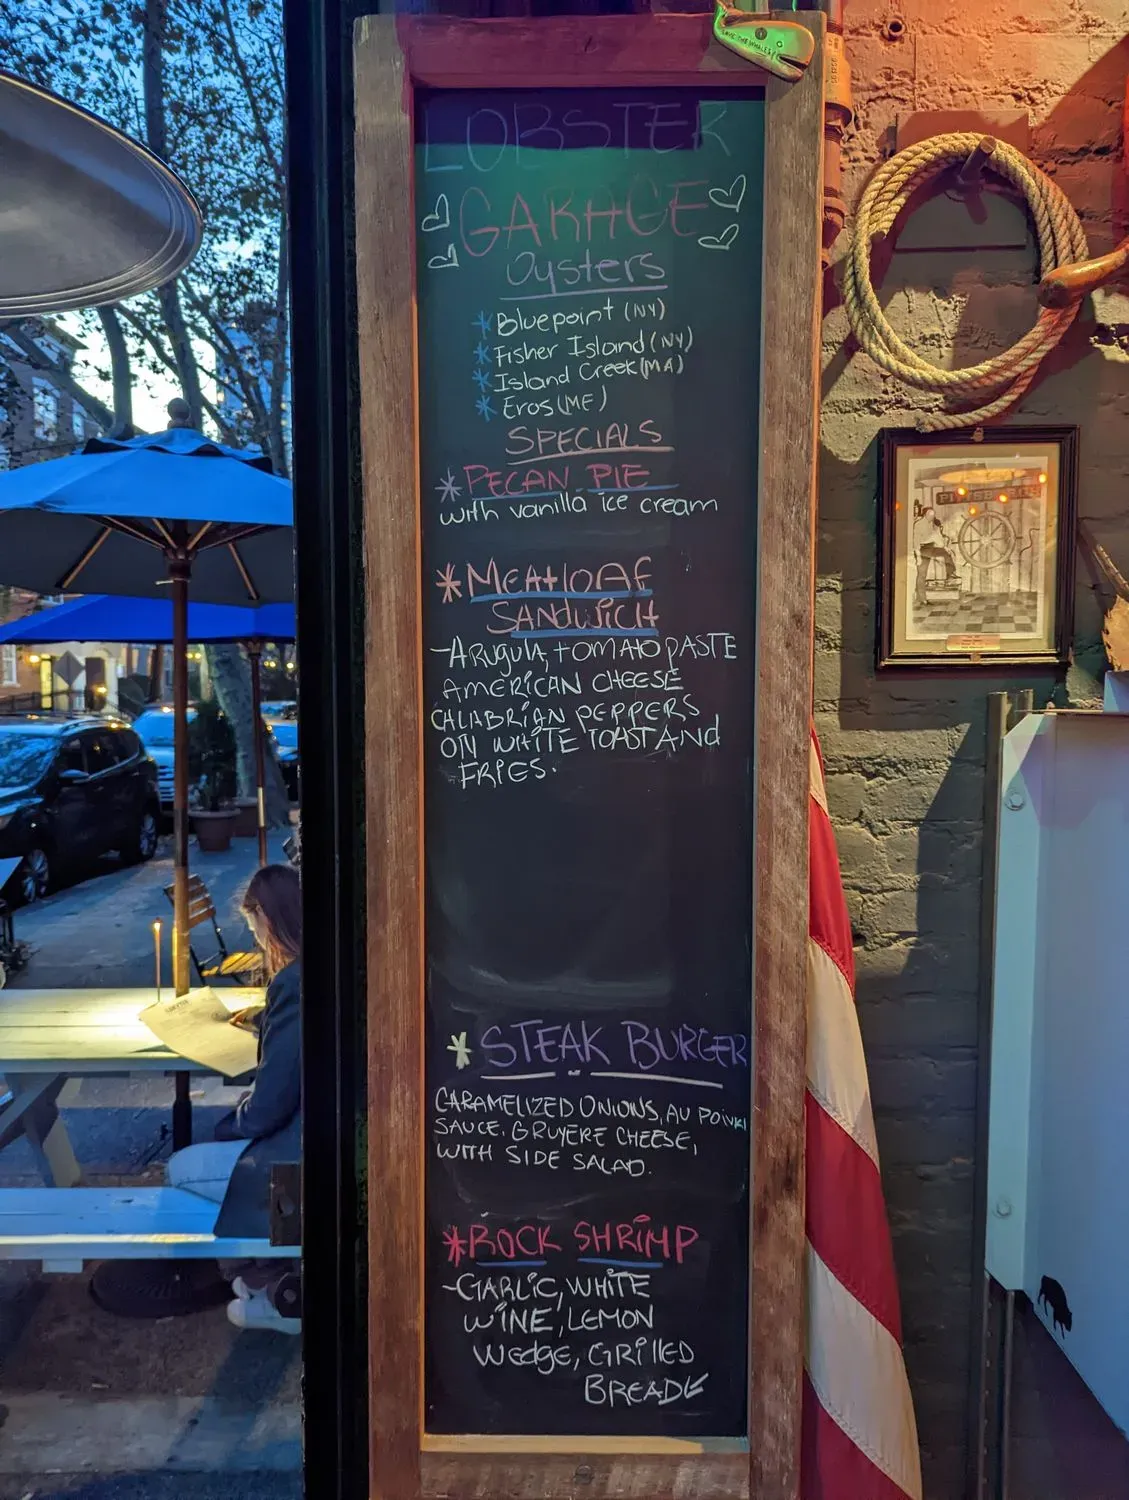 LOBSTER
GARAGE
Oysters
* Bluepoint (NY)
* Fisher Island (NY)
* Island Creek (MA)
* Eros (ME)
SPECIALS
* PECAN PIE
with vanilla ice cream
* MEATLOAF
SANDWICH
- ARUGULA, TOMATO PASTE
AMERICAN CHEESE
CALABRIAN PEPPERS
ON WHITE TOAST AND
FRIES.
* STEAK BURGER
CARAMELIZED ONIONS, AU POIVR
SAUCE. GRUYERE CHEESE,
WITH SIDE SALAD.
* ROCK SHRIMP
- GARLIC, WHITE
WINE, LEMON
Wedge, GRILLED
BREAD